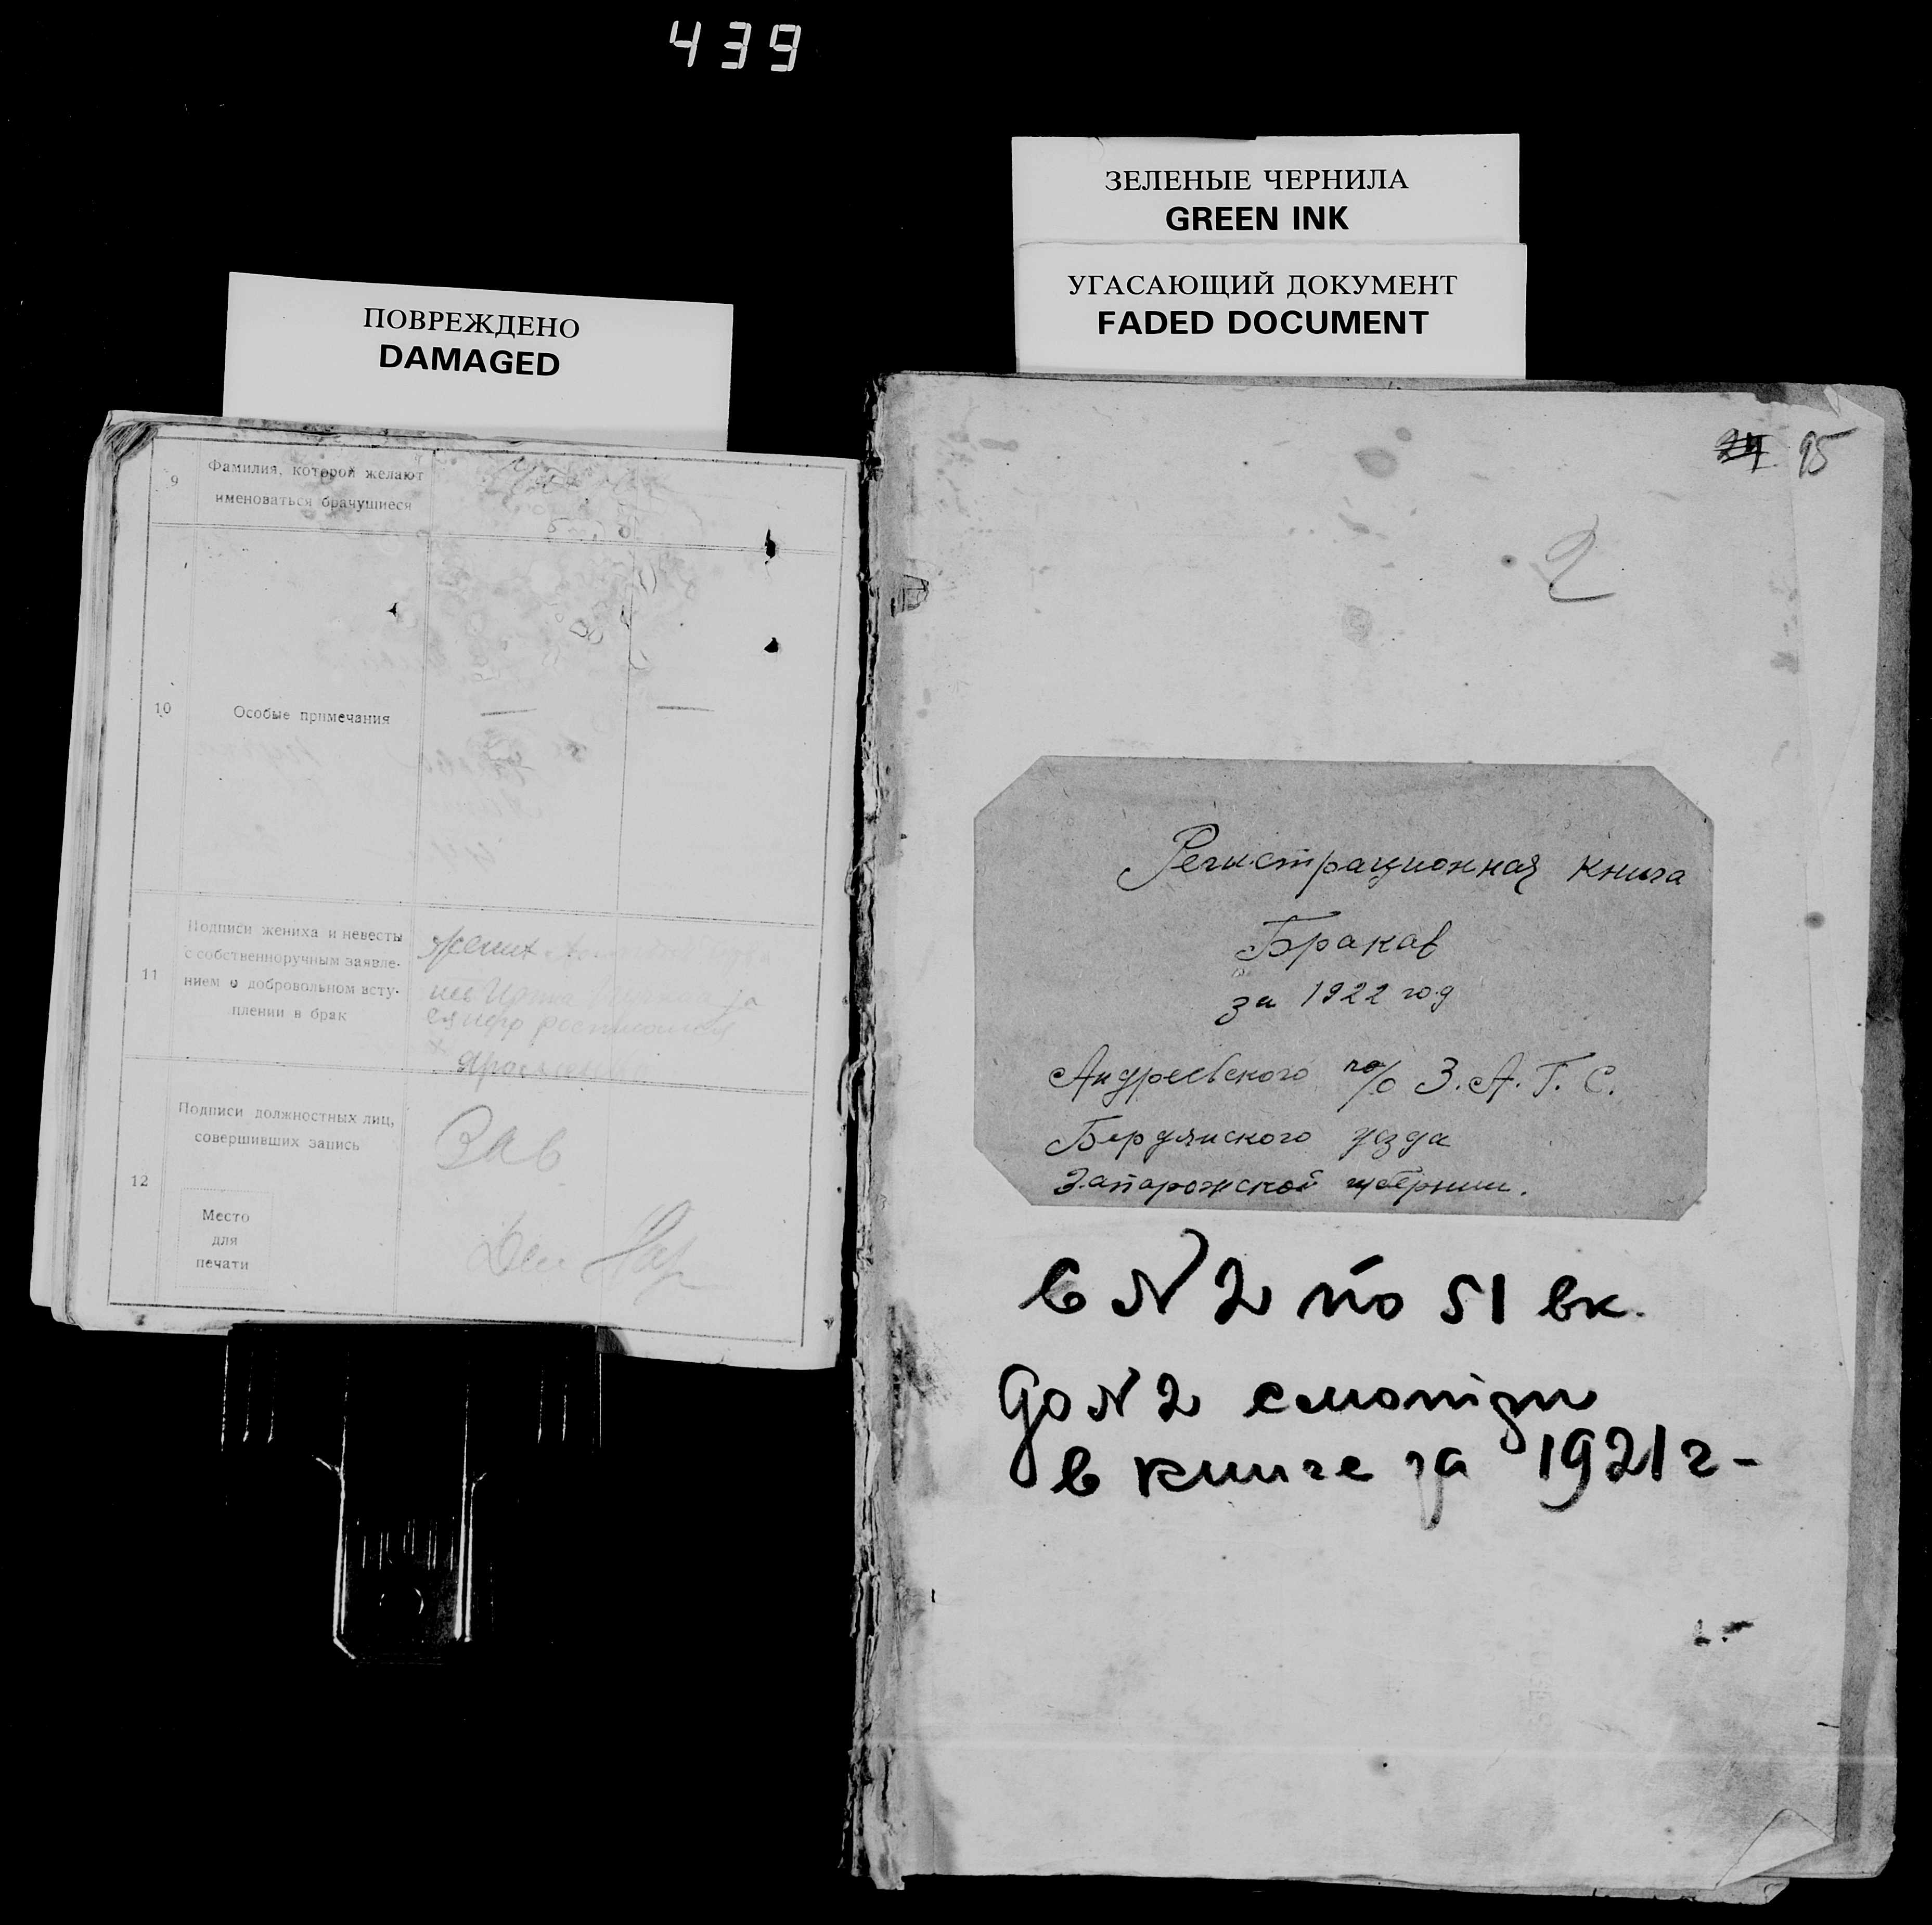 439
ПОВРЕЖДЕНО
DAMAGED
ЗЕЛЕНЫЕ ЧЕРНИЛА
GREEN INK
УГАСАЮЩИЙ ДОКУМЕНТ
FADED DOCUMENT
9
Фамилия, которой желают
именоваться брачущиеся
10
Особые примечания
11
Подписи жениха и невесты
с собственноручным заявле-
нием о добровольном всту-
плении в брак
Жених
12
Подписи должностных лиц,
совершивших запись
Зав
Место
для
печати
95
2
Регистрационная книга
Бракав
за 1922 год
Андреевского по/о З.А.Г.С.
Бердянского уезда
Запарожской губернии.
С № 2 по 51 вк.
до № 2 смотри
в книге за 1921 г-